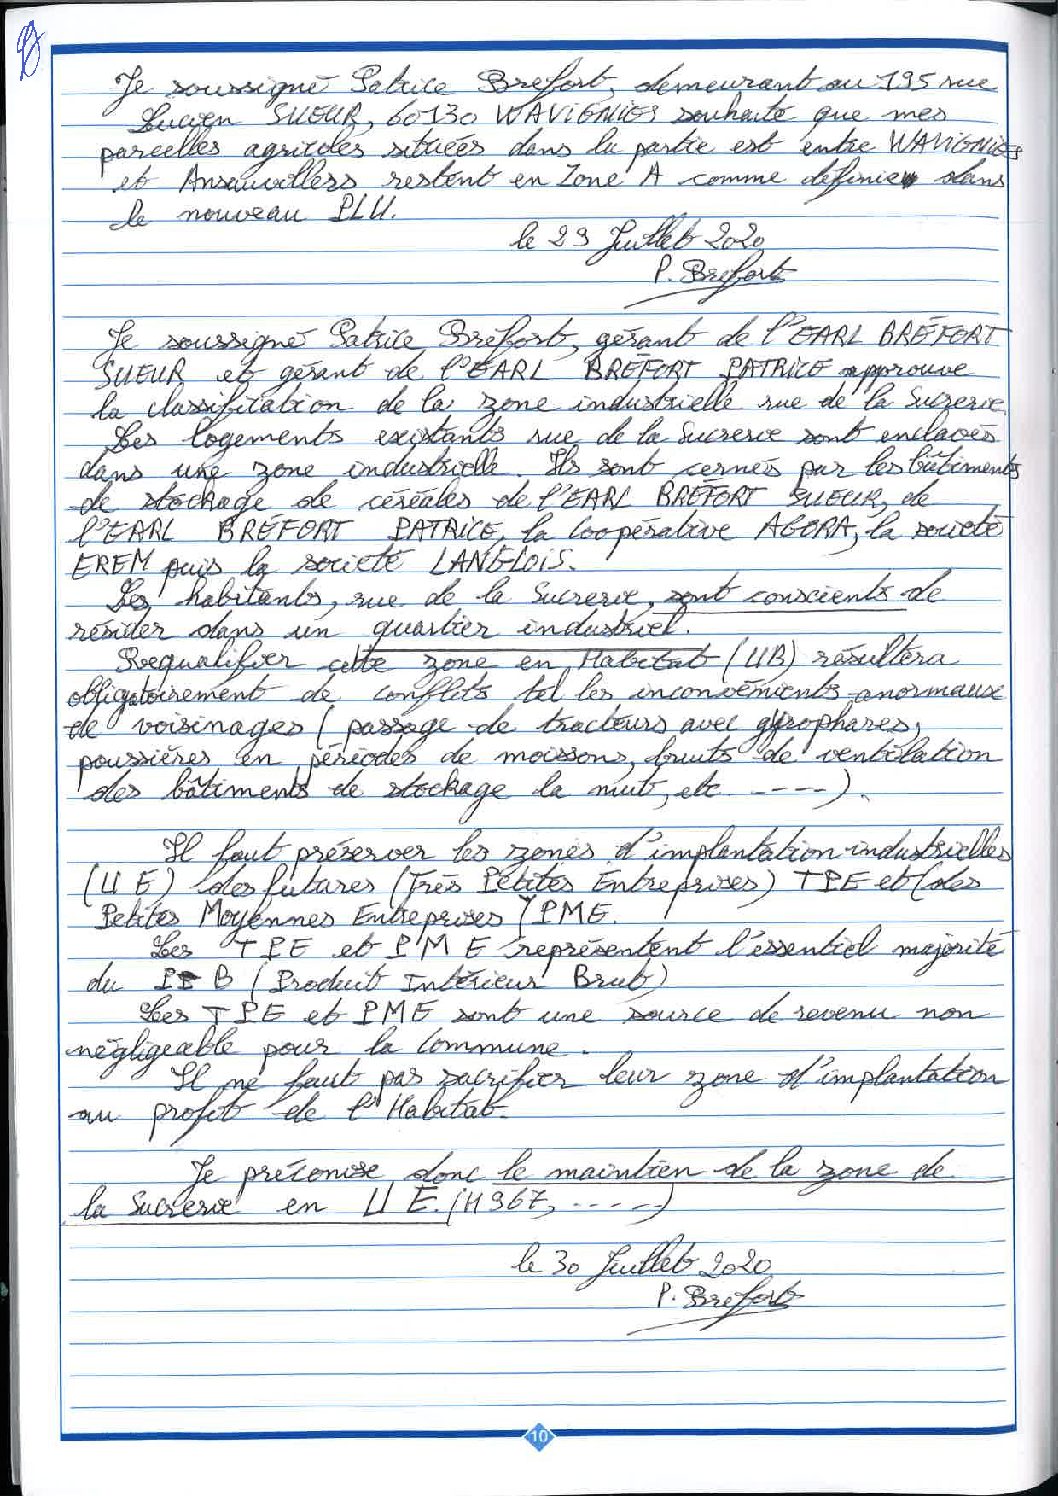 Je soussigné Patrice Brefort, demeurant au 195 rue
Lucien SUEUR, 60130 WAVIGNIES souhaite que mes
parcelles agricoles situées dans la partie est entre WAVIGNIES
et Ansauvillers restent en Zone A comme définie dans
le nouveau PLU.
le 29 Juillet 2020
P. Brefort
Je soussigné Patrice Bréfort, gérant de l'EARL BRÉFORT
SUEUR et gérant de l'EARL BREFORT PATRICE approuve
la classification de la zone industrielle rue de la Sucrerie.
Les logements existants rue de la Sucrerie sont enclavés
dans une zone industrielle. Ils sont cernés par les bâtiments
de stockage de céréales de l'EARL BRÉFORT SUEUR, de
l'EARL BRÉFORT PATRICE, la Coopérative AGORA, la société
EREM puis la société LANGLOIS.
Les habitants, rue de la Sucrerie, sont conscients de
résider dans un quartier industriel.
Requalifier cette zone en Habitat (UB) résultera
obligatoirement de conflits tel les inconvénients anormaux
de voisinages (passage de tracteurs avec gyrophares,
poussières en périodes de moissons, bruits de ventilation
des bâtiments de stockage la nuit, etc ----).
Il faut préserver les zones d'implantation industrielles
(UE) des futures (Très Petites Entreprises) TPE et (des
Petites Moyennes Entreprises) PME.
Les TPE et PME représentent l'essentiel majorité
du PIB (Produit Intérieur Brut)
Les TPE et PME sont une source de revenu non
négligeable pour la commune.
Il ne faut pas sacrifier leur zone d'implantation
au profit de l'Habitat.
Je préconise donc le maintien de la zone de
la Sucrerie en UE. (H967, -----)
le 30 Juillet 2020
P. Brefort
10